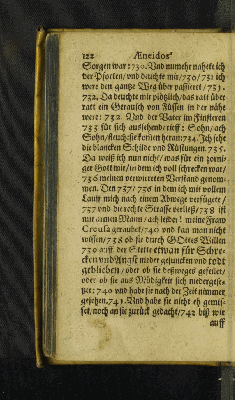 122 Æneidos
Sorgen war: 730. Und nunmehr nahete ich
der Pforten/ und deuchte mir/ 730/731 ich
were den gantze Weg über passieret/ 731.
732. Da deuchte mir plötzlich/ das ich über-
ein Gerausch von Füssen in der nähe
were: 732 Und der Vater im finstern
733 für sich aussehende/ rieff: Sohn/ ach
Sohn/ fleuch/ sie kommen heran: 734. Ich sehe
die blancken Schilde und Rüstungen. 735.
Da weiß ich nun nicht/ was für ein zorni-
ger Gott mir/ in dem ich voll schrecken war/
736 meinen verwirreten Verstand genom-
men. Den 737/ 736 in dem ich mit vollem
Lauff mich nach einem Abwege verfügete/
737 und die rechte Strasse verließ/ 738 ist
mir armen Mann/ ach leyder! meine Fraw
Creusa geraubet/ 740 und kan man nicht
wissen/ 738 ob sie durch GOttes Willen
739 auff der Stätte etwan für Schre-
cken und Angst nieder gesuncken und todt
geblieben/ oder ob sie deß weges gefeilet/
oder ob sie aus Müdigkeit sich niedergese-
tzet: 740 und habe sie nach der Zeit nimmer
gesehen. 741. Und habe sie nicht eh gemis-
set, noch an sie zurück gedacht/ 742 biß wir
auff